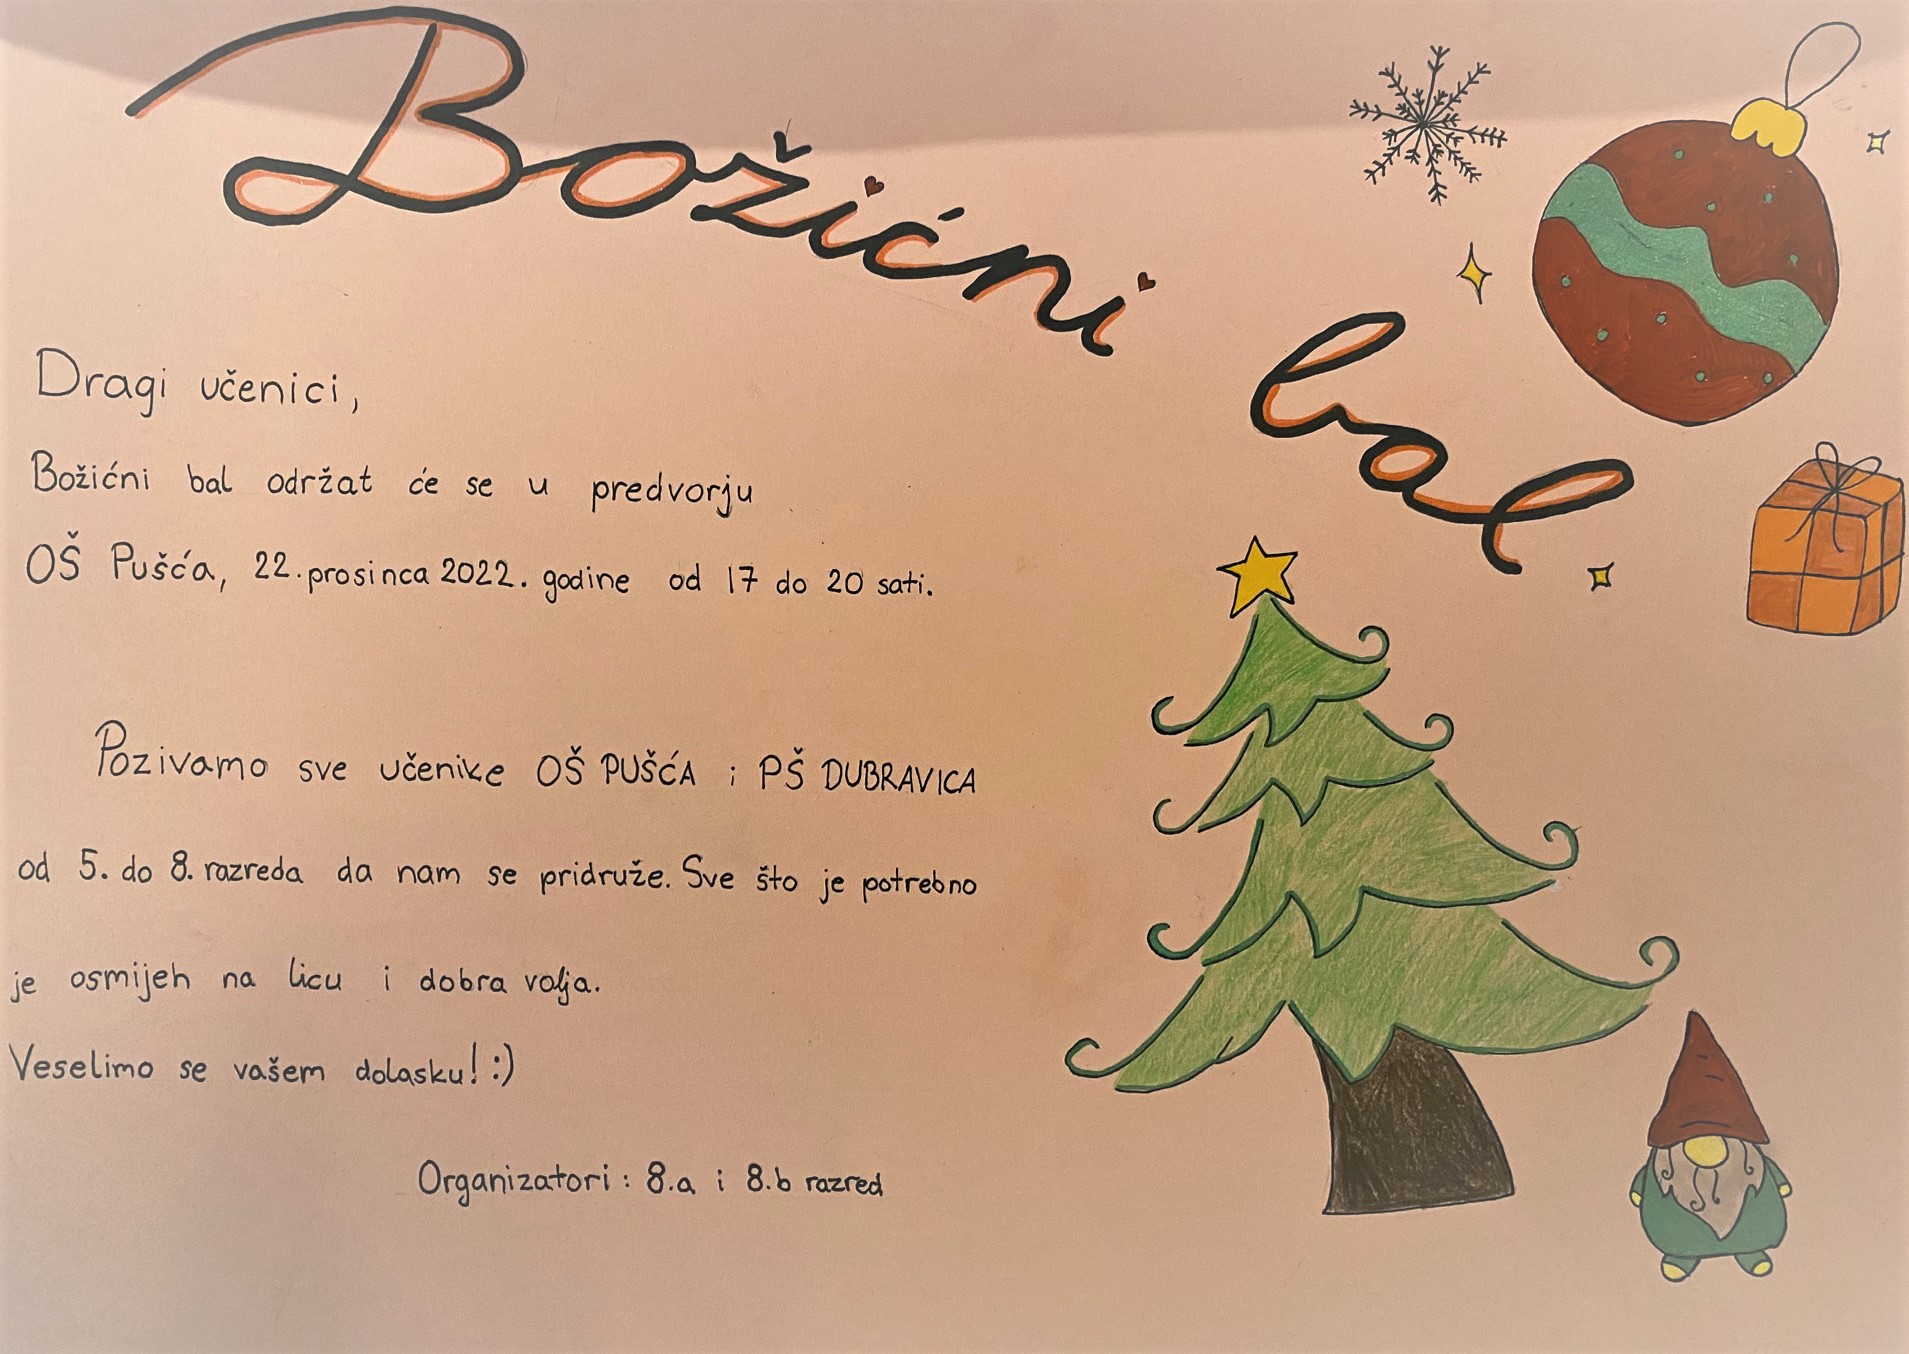 Božićni bal
Dragi učenici,
Božićni bal održat će se u predvorju
OŠ Pušća, 22. prosinca 2022. godine od 17 do 20 sati.
Pozivamo sve učenike OŠ PUŠĆA i PŠ DUBRAVICA
od 5. do 8. razreda da nam se pridruže. Sve što je potrebno
je osmijeh na licu i dobra volja.
Veselimo se vašem dolasku! :)
Organizatori : 8.a i 8.b razred